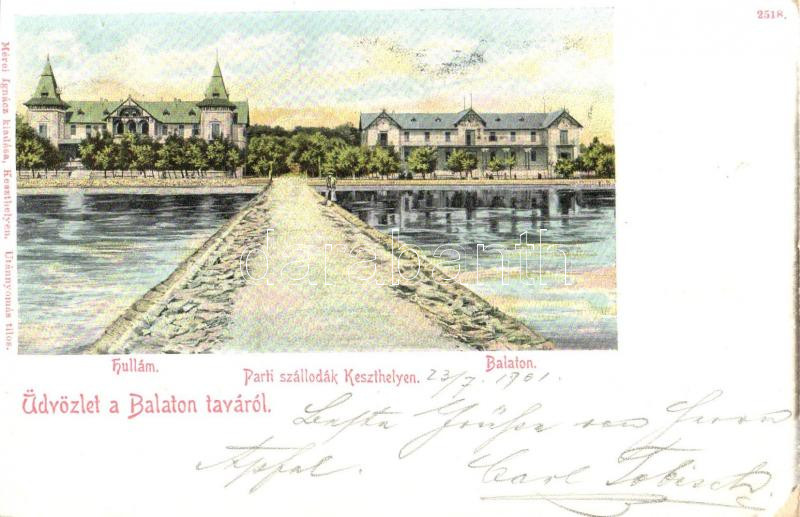 2518.
Mérei Ignácz kiadása, Keszthelyen. Utánnyomás tilos.
darabanth
Hullám.
Balaton.
Parti szállodák Keszthelyen.
23/7. 1901.
Üdvözlet a Balaton taváról.
Beste Grüße von Herrn
Apfel. Carl Tobisch.